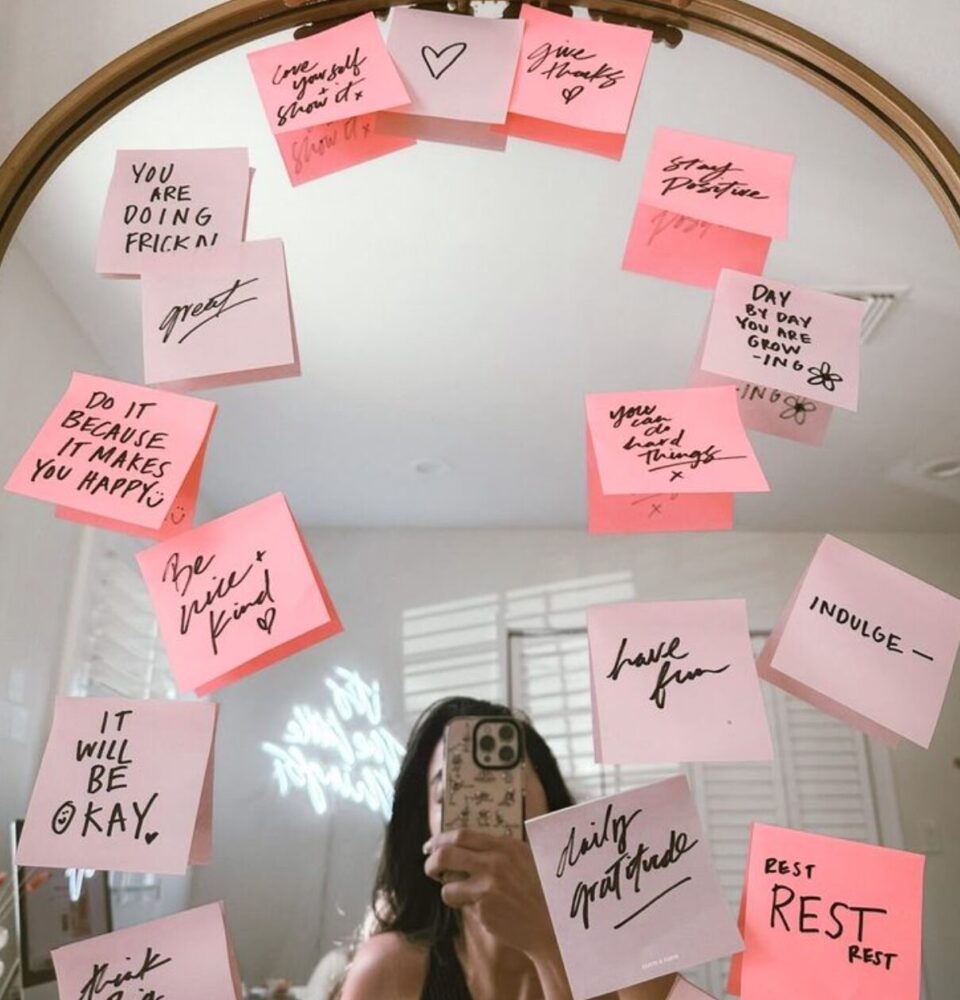 love
yourself
+
show it x
give
thanks
YOU
ARE
DOING
FRICKN
great
stay
positive
DAY
BY DAY
YOU ARE
GROW
-ING
DO IT
BECAUSE
IT MAKES
YOU HAPPY
you
can
do
hard
things
x
Be
nice +
kind
have
fun
INDULGE —
IT
WILL
BE
OKAY
daily
gratitude
REST
REST
REST
think